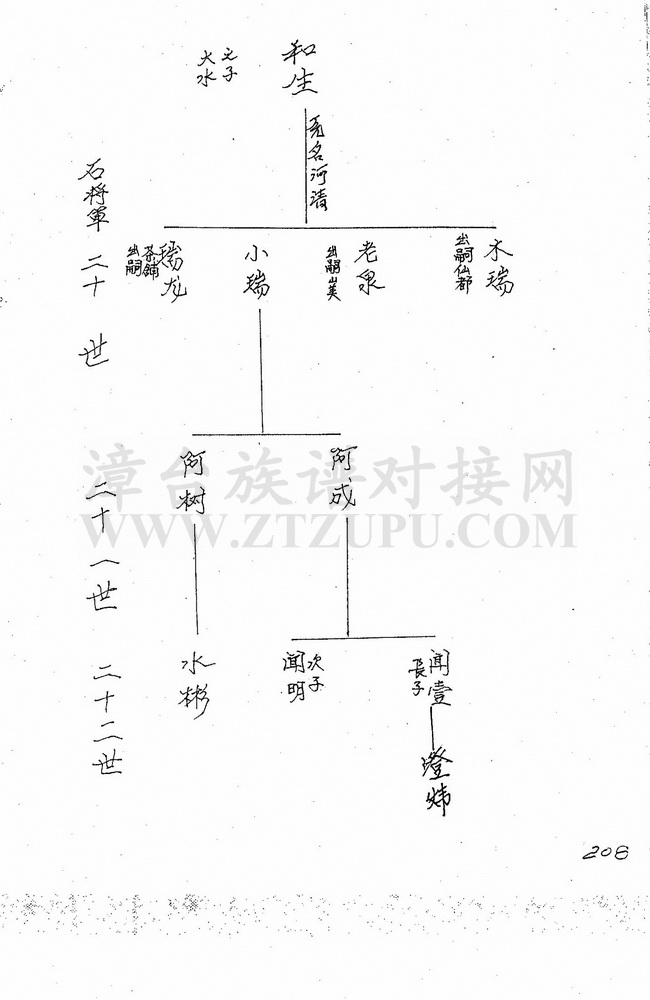 和生
之子
大水
亮名河清
石将軍 二十 世
木瑞
出嗣仙都
老泉
出嗣山美
小瑞
瑞龙
茶鋪
出嗣
二十一世
阿成
阿树
二十二世
闻壹
長子
次子
闻明
水彬
澄炜
208
漳台族谱对接网
WWW.ZTZUPU.COM